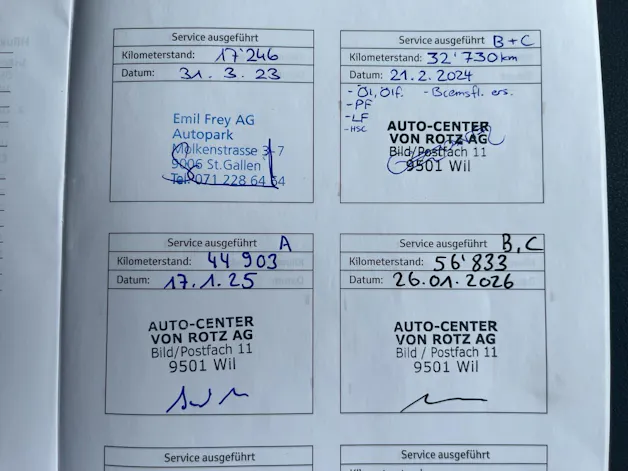 Service ausgeführt
Kilometerstand: 17'246
Datum: 31. 3. 23
Emil Frey AG
Autopark
Molkenstrasse 3-7
9006 St.Gallen
Tel. 071 228 64 64
Service ausgeführt B+C
Kilometerstand: 32'730km
Datum: 21.2.2024
- Öl, Ölf. - Bremsfl. ers.
- PF
- LF
- HSC
AUTO-CENTER
VON ROTZ AG
Bild/Postfach 11
9501 Wil
Service ausgeführt A
Kilometerstand: 44 903
Datum: 17.1.25
AUTO-CENTER
VON ROTZ AG
Bild/Postfach 11
9501 Wil
Service ausgeführt B,C
Kilometerstand: 56'833
Datum: 26.01.2026
AUTO-CENTER
VON ROTZ AG
Bild / Postfach 11
9501 Wil
Service ausgeführt
Service ausgeführt
Kilometerstand: